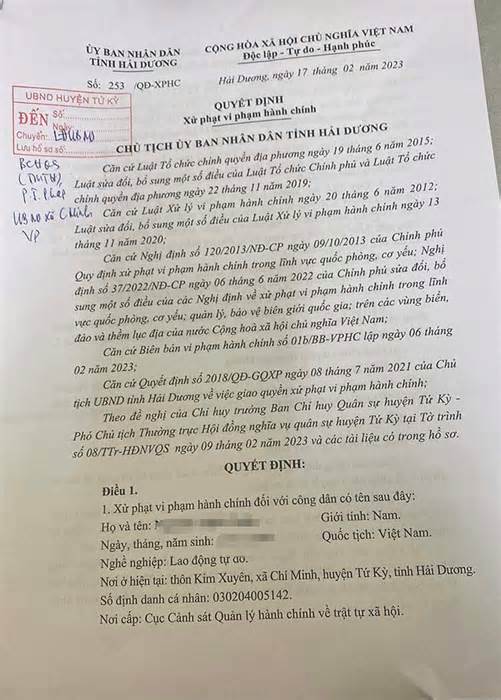 ỦY BAN NHÂN DÂN
TỈNH HẢI DƯƠNG
Số: 253 /QĐ-XPHC
CỘNG HÒA XÃ HỘI CHỦ NGHĨA VIỆT NAM
Độc lập - Tự do - Hạnh phúc
Hải Dương, ngày 17 tháng 02 năm 2023
UBND HUYỆN TỨ KỲ
ĐẾN
Số:
Ngày:
Chuyển:
Lưu hồ sơ số:
QUYẾT ĐỊNH
Xử phạt vi phạm hành chính
CHỦ TỊCH ỦY BAN NHÂN DÂN TỈNH HẢI DƯƠNG
BCHQS
VP
Căn cứ Luật Tổ chức chính quyền địa phương ngày 19 tháng 6 năm 2015;
Luật sửa đổi, bổ sung một số điều của Luật Tổ chức Chính phủ và Luật Tổ chức
chính quyền địa phương ngày 22 tháng 11 năm 2019;
Căn cứ Luật Xử lý vi phạm hành chính ngày 20 tháng 6 năm 2012;
Luật sửa đổi, bổ sung một số điều của Luật Xử lý vi phạm hành chính ngày 13
tháng 11 năm 2020;
Căn cứ Nghị định số 120/2013/NĐ-CP ngày 09/10/2013 của Chính phủ
Quy định xử phạt vi phạm hành chính trong lĩnh vực quốc phòng, cơ yếu; Nghị
định số 37/2022/NĐ-CP ngày 06 tháng 6 năm 2022 của Chính phủ sửa đổi, bổ
sung một số điều của các Nghị định về xử phạt vi phạm hành chính trong lĩnh
vực quốc phòng, cơ yếu; quản lý, bảo vệ biên giới quốc gia; trên các vùng biển,
đảo và thềm lục địa của nước Cộng hoà xã hội chủ nghĩa Việt Nam;
Căn cứ Biên bản vi phạm hành chính số 01b/BB-VPHC lập ngày 06 tháng
02 năm 2023;
Căn cứ Quyết định số 2018/QĐ-GQXP ngày 08 tháng 7 năm 2021 của Chủ
tịch UBND tỉnh Hải Dương về việc giao quyền xử phạt vi phạm hành chính;
Theo đề nghị của Chỉ huy trưởng Ban Chỉ huy Quân sự huyện Tứ Kỳ -
Phó Chủ tịch Thường trực Hội đồng nghĩa vụ quân sự huyện Tứ Kỳ tại Tờ trình
số 08/TTr-HĐNVQS ngày 09 tháng 02 năm 2023 và các tài liệu có trong hồ sơ.
QUYẾT ĐỊNH:
Điều 1.
1. Xử phạt vi phạm hành chính đối với công dân có tên sau đây:
Họ và tên: Giới tính: Nam.
Ngày, tháng, năm sinh: Quốc tịch: Việt Nam.
Nghề nghiệp: Lao động tự do.
Nơi ở hiện tại: thôn Kim Xuyên, xã Chí Minh, huyện Tứ Kỳ, tỉnh Hải Dương.
Số định danh cá nhân: 030204005142.
Nơi cấp: Cục Cảnh sát Quản lý hành chính về trật tự xã hội.